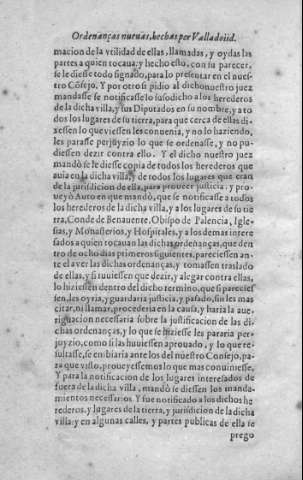 Ordenanças nueuas, hechas per Valladolid.
macion de la vtilidad de ellas, llamadas, y oydas las
partes a quien tocaua: y hecho esto, con su parecer,
se le diesse todo signado, para lo presentar en el nues-
tro Cōsejo. Y por otro si pidio al dicho nuestro juez
mandasse se notificasse lo susodicho a los herederos
de la dicha villa, y sus Diputados en su nombre, y a to
dos los lugares de su tierra, para que cerca de ellas di-
xessen lo que viessen les conuenia, y no lo haziendo,
les parasse perjuyzio lo que se ordenasse, y no pu-
diessen dezir contra ello. Y el dicho nuestro juez
mandò se le diesse copia de todos los herederos que
auia en la dicha villa, y de todos los lugares que eran
de la jurisdicion de ella, para proueer justicia: y pro-
ueyò Auto en que mandò, que se notificasse a todos
los herederos de la dicha villa, y a los lugares de su tie
rra, Conde de Benauente, Obispo de Palencia, Igle-
sias, y Monasterios, y Hospitales, y a los demas intere-
sados a quien tocauan las dichas ordenanças, que den
tro de ocho dias primeros siguientes, pareciessen an-
te el a ver las dichas ordenanças, y tomassen traslado
de ellas, y si tuuiessen que dezir, y alegar contra ellas,
lo hiziessen dentro del dicho termino, que si parecies
sen, les oyria, y guardaria justicia, y pasado, sin les mas
citar, ni llamar, procederia en la causa, y haria la aue-
riguacion necessaria sobre la justificacion de las di-
chas ordenanças, y lo que se hiziesse les pararia per-
juyzio, como si las huuiessen aprouado, y lo que re-
sultasse, se enbiaria ante los del nuestro Consejo, pa-
ra que visto, proueyessemos lo que mas conuiniesse.
Y para la notificacion de los lugares interesados de
fuera de la dicha villa, mandò se diessen los manda-
mientos necessarios. Y fue notificado a los dichos he
rederos, y lugares de la tierra, y jurisdicion de la dicha
villa: y en algunas calles, y partes publicas de ella se
prego